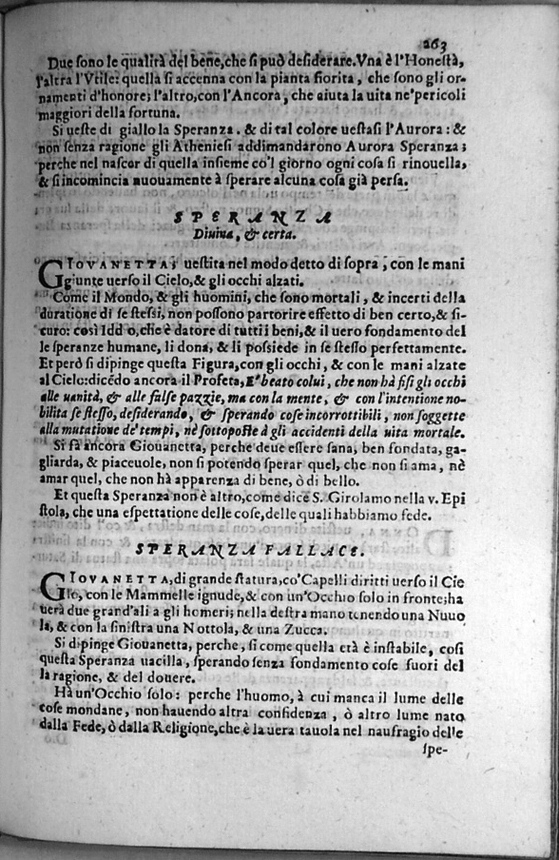 263
Due sono le qualità del bene, che si può desiderare. Vna è l'Honestà,
l'altra l'Vtile: quella si accenna con la pianta fiorita, che sono gli or-
namenti d'honore; l'altro, con l'Ancora, che aiuta la uita ne'pericoli
maggiori della fortuna.
Si ueste di giallo la Speranza. & di tal colore uestasi l'Aurora: &
non senza ragione gli Atheniesi addimandarono Aurora Speranza;
perche nel nascer di quella insieme co'l giorno ogni cosa si rinouella,
& si incomincia nuouamente à sperare alcuna cosa già persa.
SPERANZA
Diuina, & certa.
GIOVANETTA; uestita nel modo detto di sopra, con le mani
giunte uerso il Cielo, & gli occhi alzati.
Come il Mondo, & gli huomini, che sono mortali, & incerti della
duratione di se stessi, non possono partorire effetto di ben certo, & si-
curo: così Iddio, che è datore di tutti i beni, & il uero fondamento del
le speranze humane, li dona, & li possiede in se stesso perfettamente.
Et però si dipinge questa Figura, con gli occhi, & con le mani alzate
al Cielo: dicēdo ancora il Profeta, E' beato colui, che non hà fisi gli occhi
alle uanità, & alle false pazzie, ma con la mente, & con l'intentione no-
bilita se stesso, desiderando, & sperando cose incorrottibili, non soggette
alla mutatione de' tempi, nè sottoposte à gli accidenti della uita mortale.
Si fà ancora Giouanetta, perche deue essere sana, ben fondata, ga-
gliarda, & piaceuole, non si potendo sperar quel, che non si ama, nè
amar quel, che non hà apparenza di bene, ò di bello.
Et questa Speranza non è altro, come dice S. Girolamo nella v. Epi
stola, che una espettatione delle cose, delle quali habbiamo fede.
SPERANZA FALLACE.
GIOVANETTA, di grande statura, co' Capelli diritti uerso il Cie
lo, con le Mammelle ignude, & con un'Occhio solo in fronte; ha
uerà due grand'ali a gli homeri; nella destra mano tenendo una Nuuo
la, & con la sinistra una Nottola, & una Zucca.
Si dipinge Giouanetta, perche, si come quella età è instabile, così
questa Speranza uacilla, sperando senza fondamento cose fuori del
la ragione, & del douere.
Hà un'Occhio solo: perche l'huomo, à cui manca il lume delle
cose mondane, non hauendo altra confidenza, ò altro lume nato
dalla Fede, ò dalla Religione, che è la uera tauola nel naufragio delle
spe-